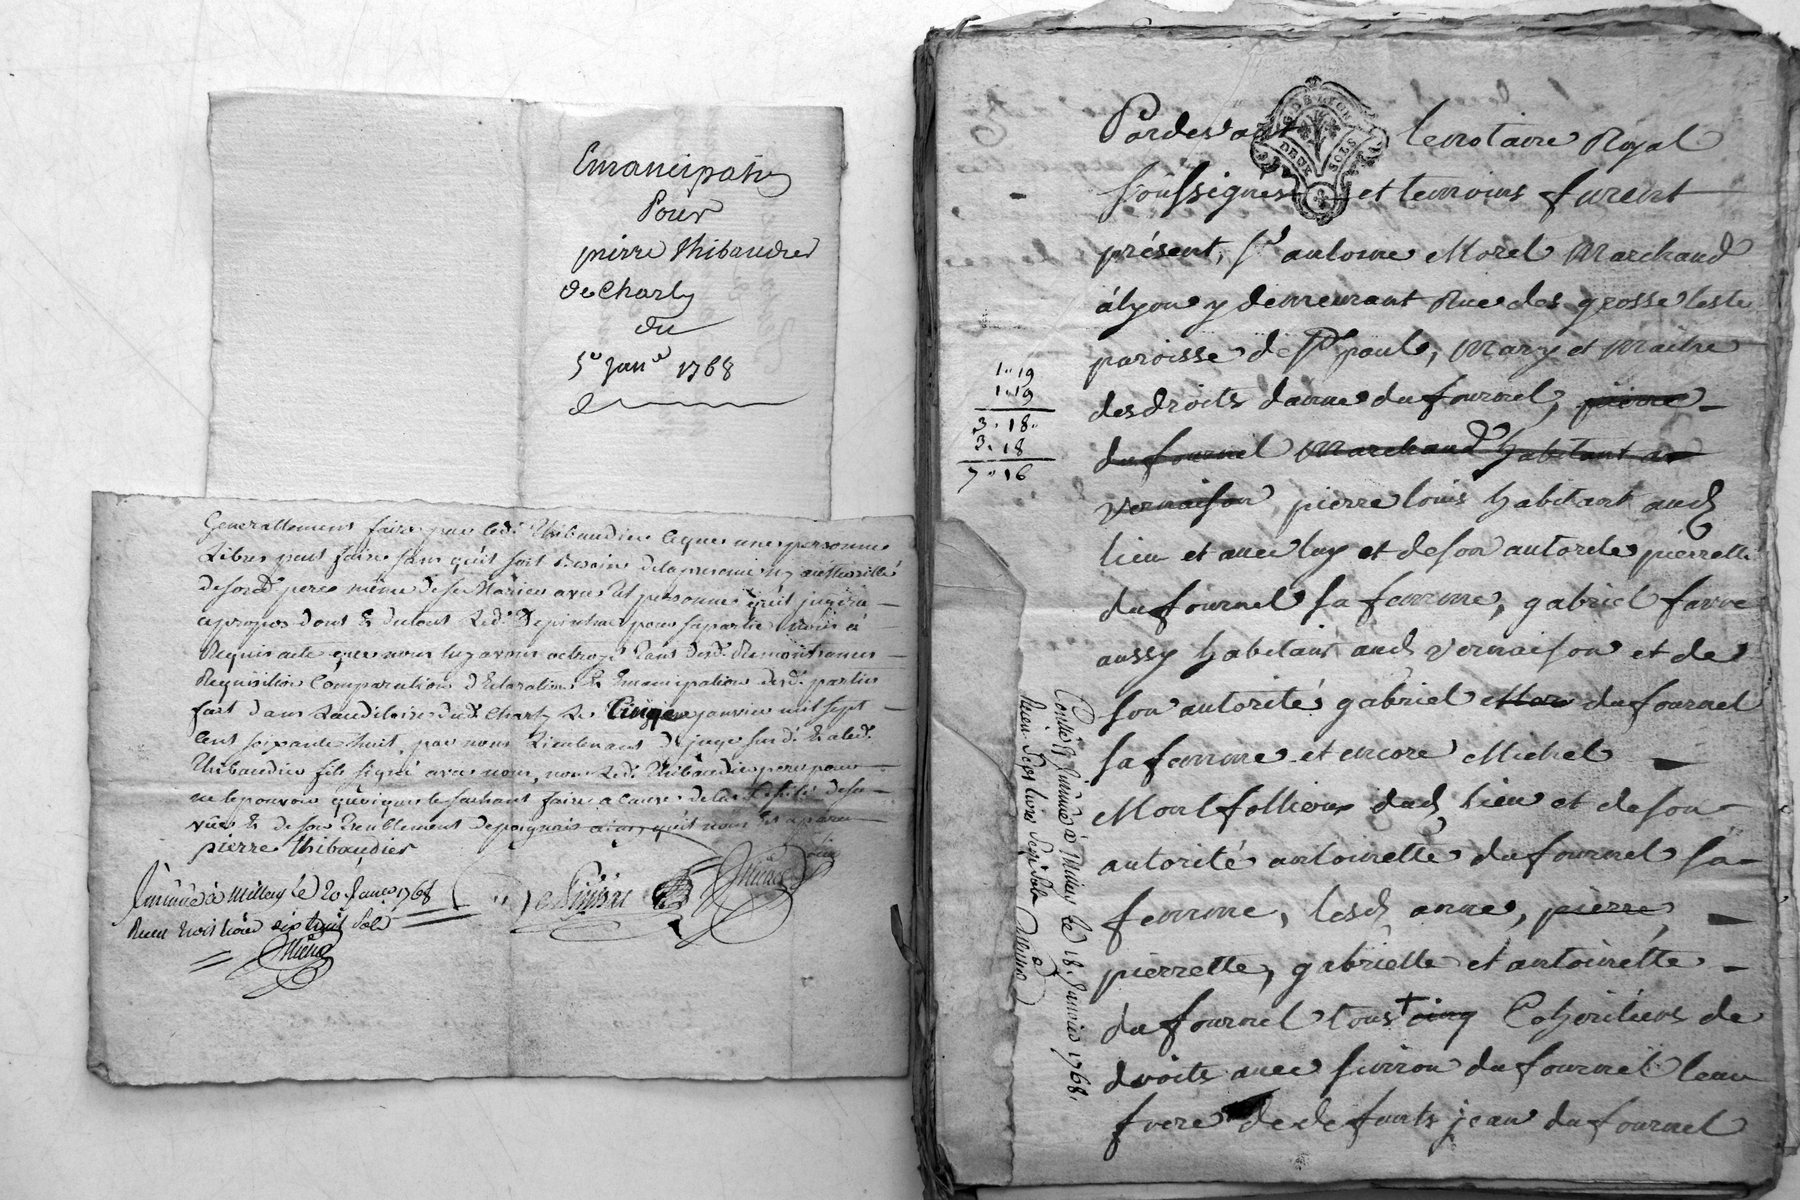 Emancipation
Pour
pierre thibaudier
de Charly
du
5e Janer 1768
Generallement faire par led. thibaudier ceque une personne
Libre peut faire sans qu'il soit besoin dela presence ny
desond. pere même de se Marier avec tel personne qu'il jugera
apropos dont Et dutout
Requis acte que nous luy avons octroyé Remontrances
Requisition Comparution declaration Et Emancipation desd. parties
fait dans Lauditoire dud. Charly Le Cinq janvier mil sept
Cent soixante huit, par nous Lieutenant de juge susd. Et aled.
thibaudier fils signé avec nous, non Led. thibaudier pere pour
ne lepouvoir quoique le sachant faire a cause dela de sa
vüe Et de son tremblement depoignais ainsy quil nous
pierre thibaudier
a Millery le 20 Janer 1768
Receu trois livres dix huit sols
Pardevant le notaire Royal
G. DE LYON
DEUX SOLS
soussignés et temoins furent
présent, Sr antoine Morel Marchand
àlyon y demeurant Rue des grosse teste
paroisse de St paul, Mary et Maitre
des droits danne dufournel, pierre
dufournel Marchand habitant de
vernaison, pierre louis habitant aud
lieu et avec luy et deson autorité pierrette
dufournel sa femme, gabriel favre
aussy habitant aud vernaison et de
son autorité gabriel dufournel
sa femme et encore Michel
dud lieu et deson
autorité antoinette dufournel sa
femme, lesd anne, pierre,
pierrette, gabrielle et antoinette
dufournel tous + cinq Cohéritiers de
droits avec simon dufournel leur
frere de defunts jean dufournel
1.. 19
1.. 19
3. 18..
3. 18
7.. 16
a Millery le 18. Janvier 1768.
sept livres seize sols